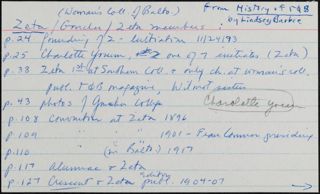 (Woman's Coll. of Balto.)
From History of ΓΦΒ
by Lindsey Barbee
Zeta / Goucher / Zeta members:
p. 24 Founding of Z - Initiation 11/24/93
p. 25 Charlotte one of 7 initiates (Zeta)
p. 38 Zeta 1st at Southern Coll. & only ch. at woman's coll.
publ. mag magazine, Wilmot sister
p. 43 photos of Goucher College Charlotte
p. 108 Convention at Zeta 1896
p. 109 " " " 1901 - Fran Connor presiding
p. 110 " " (in Balto) 1917
p. 117 Alumnae & Zeta
p. 127 Crescent & Zeta editors publ. 1904-07